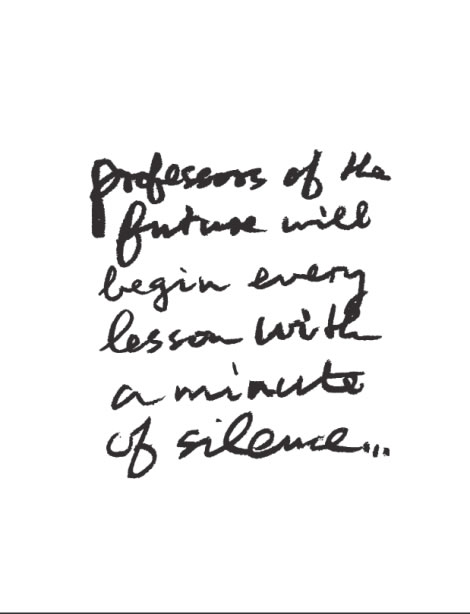 professors of the
future will
begin every
lesson with
a minute
of silence...